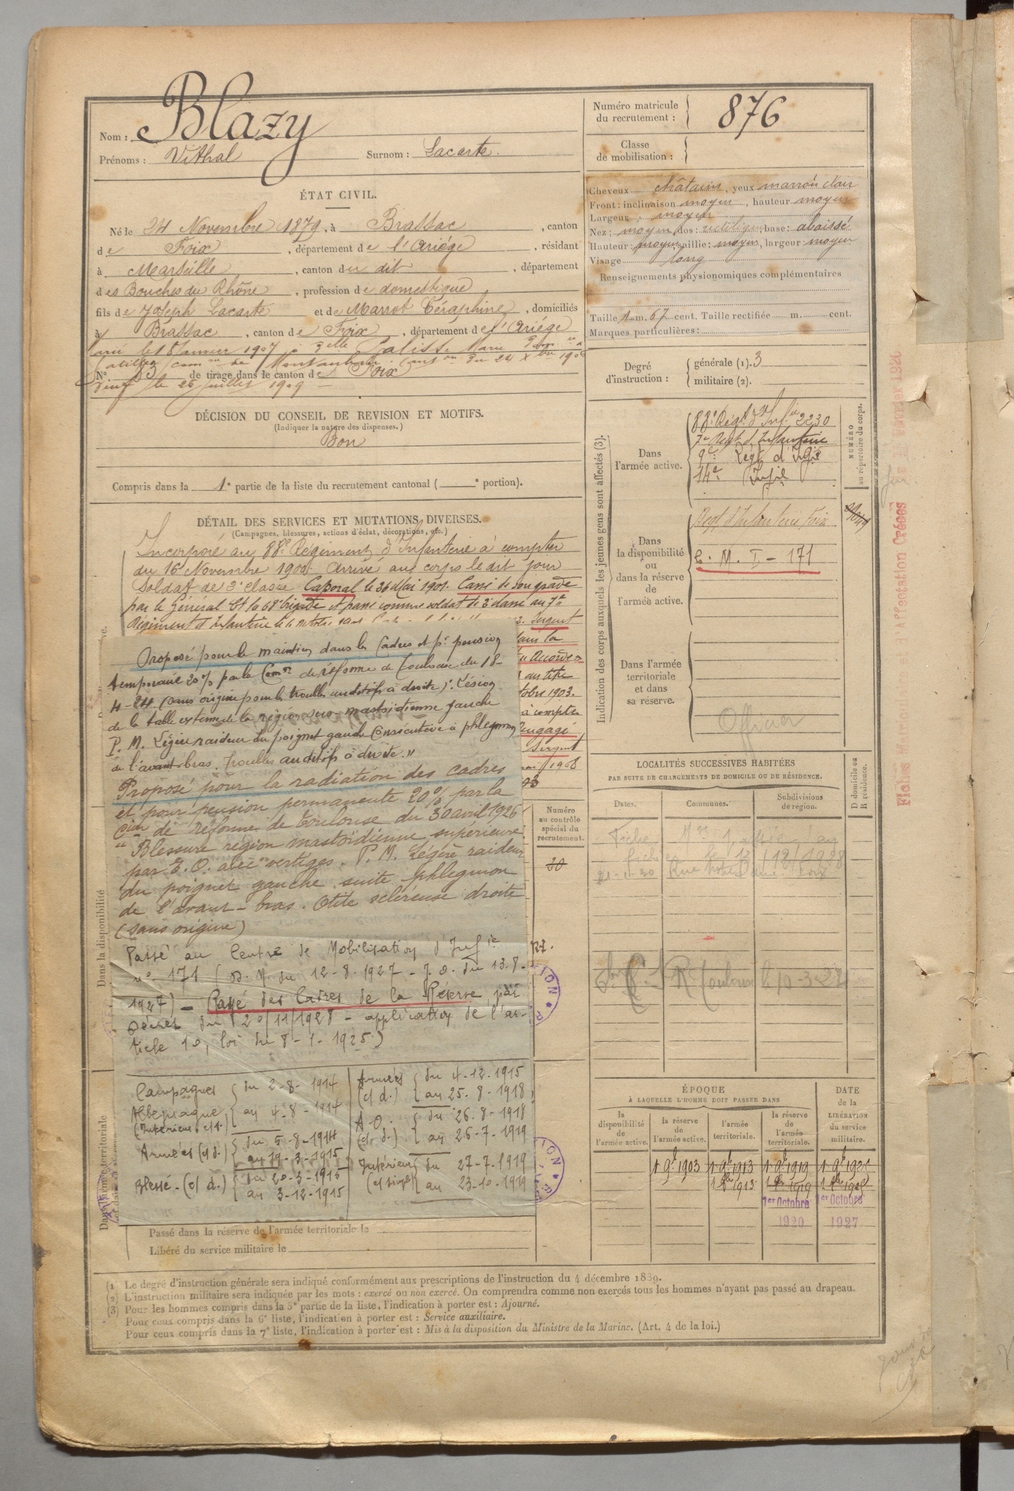 Nom : Blazy
Prénoms : Vithal Surnom : Lacarte.
Numéro matricule du recrutement : 876
Classe de mobilisation :
ÉTAT CIVIL.
Né le 24 Novembre 1879, à Brassac, canton
de Foix, département de l'Ariége, résidant
à Marseille, canton du dit, département
des Bouches du Rhône, profession de domestique
fils de Joseph Lacarte et de Marrot Séraphine, domiciliés
à Brassac, canton de Foix, département de l'Ariége
N° 63 de tirage dans le canton de Foix
veuf le 26 juillet 1909
Cheveux châtains, yeux marron clair
Front : inclinaison moyen, hauteur moyen
Largeur : moyen
Nez : moyen dos : rectiligne; base : abaissé
Hauteur : moyen saillie : moyen, largeur moyen
Visage long
Renseignements physionomiques complémentaires
Taille 1 m. 67 cent. Taille rectifiée m. cent.
Marques particulières :
Degré d'instruction : générale (1). 3
militaire (2).
DÉCISION DU CONSEIL DE REVISION ET MOTIFS.
(Indiquer la nature des dispenses.)
Bon
Compris dans la 1e partie de la liste du recrutement cantonal ( e portion).
DÉTAIL DES SERVICES ET MUTATIONS DIVERSES.
(Campagnes, blessures, actions d'éclat, décorations, etc.)
Incorporé au 88e Régiment d'Infanterie à compter
du 16 Novembre 1900. Arrivé au corps le dit jour
Soldat de 2e classe Caporal le 30 Mai 1901. Cassé de son grade
par le Général Ct la 68e brigade et passé comme soldat de 2e classe au 7e
Régiment d'Infanterie le
Sergent
dans la
Accorde
1903.
à compter
rengagé
Sergent
1908
Proposé pour le maintien dans les Cadres et pr pension
temporaire 20% par la Comon de réforme de Toulouse du 18-
4-24 (sans origine pour les troubles auditifs à droite) : Lésion
de la table externe de la région sus-mastoïdienne gauche
P. M. Légère raideur du poignet gauche consécutive à phlegmon
de l'avant-bras. Troubles auditifs à droite."
Proposé pour la radiation des cadres
et pour pension permanente 20% par la
Con de réforme de Toulouse du 30 avril 1926
" Blessure région mastoïdienne supérieure
par E. O. avec vertiges. P. M. Légère raideur
du poignet gauche suite phlegmon
de l'avant-bras. Otite scléreuse droite
(sans origine)
Passé au Centre de Mobilisation d'Infie
n° 171 (D. M. du 12-8-1927 - J. O. du 13-8-
1927) - Rayé des Cadres de la Réserve par
Décret du 20/11/1928 - application de l'ar-
ticle 10, loi du 8-1-1925)
Campagnes
Allemagne (Intérieur c/d.) du 2-8-1914 au 4-8-1914
Armées (c/d) du 5-8-1914 au 19-3-1915
Blessé - (c/d.) du 20-3-1915 au 3-12-1915
Armées (c/d.) du 4-12-1915 au 25-8-1918
A.O. (c/d.) du 26-8-1918 au 26-7-1919
Intérieur (c/simple) du 27-7-1919 au 23-10-1919
Passé dans la réserve de l'armée territoriale le
Libéré du service militaire le
Indication des corps auxquels les jeunes gens sont affectés (3).
NUMÉRO au répertoire du corps.
Dans l'armée active.
88e Regt d'Infie 2230
7e Regt d'Infanterie
9e Regt d'Infie
14e Infie
Dans la disponibilité ou dans la réserve de l'armée active.
Regt d'Infanterie Foix
C. M. I - 171
Dans l'armée territoriale et dans sa réserve.
Officier
LOCALITÉS SUCCESSIVES HABITÉES
PAR SUITE DE CHANGEMENTS DE DOMICILE OU DE RÉSIDENCE.
Dates. Communes. Subdivisions de région. D domicile ou R résidence.
Numéro au contrôle spécial du recrutement.
30
Dans la disponibilité
ÉPOQUE
À LAQUELLE L'HOMME DOIT PASSER DANS
DATE de la LIBÉRATION du service militaire.
la disponibilité de l'armée active. la réserve de l'armée active. l'armée territoriale. la réserve de l'armée territoriale.
1 9b 1903 1 9b 1913 1 9b 1919
1er Octobre 1920 1er Octobre 1927
(1) Le degré d'instruction générale sera indiqué conformément aux prescriptions de l'instruction du 4 décembre 1889.
(2) L'instruction militaire sera indiquée par les mots : exercé ou non exercé. On comprendra comme non exercés tous les hommes n'ayant pas passé au drapeau.
(3) Pour les hommes compris dans la 5e partie de la liste, l'indication à porter est : Ajourné.
Pour ceux compris dans la 6e liste, l'indication à porter est : Service auxiliaire.
Pour ceux compris dans la 7e liste, l'indication à porter est : Mis à la disposition du Ministre de la Marine. (Art. 4 de la loi.)